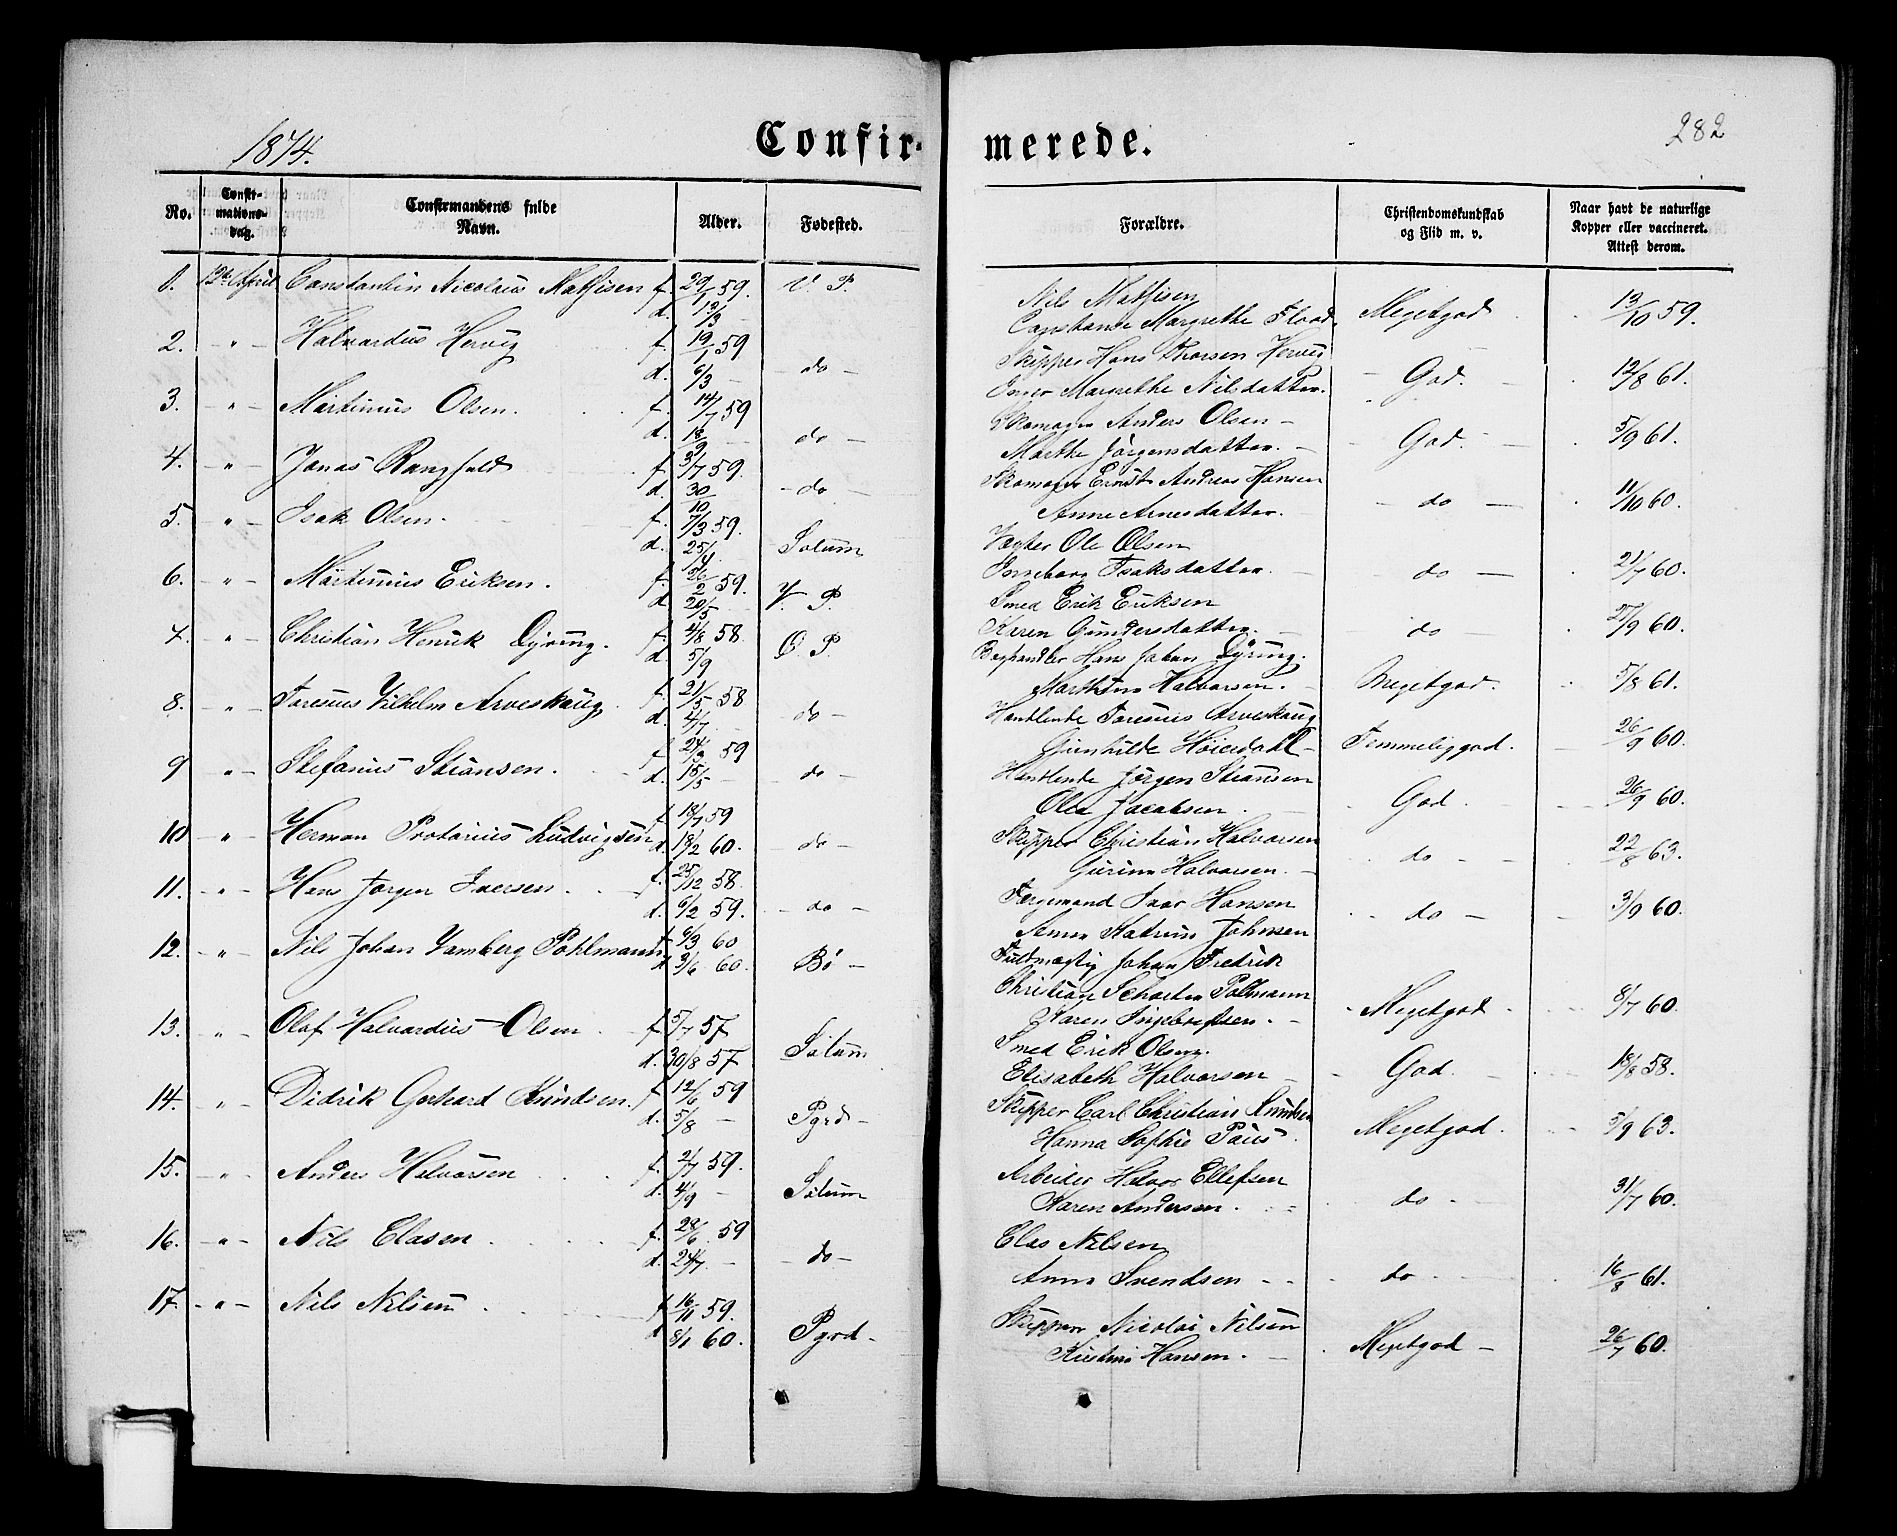 1874.
Confir-
merede.
282
No.
Confir-
mations-
dag.
Confirmandens fulde
Navn.
Alder.
Fødested.
Forældre.
Christendomskundskab
og Flid m. v.
Naar havt de naturlige
Kopper eller vaccineret.
Attest derom.
1. 12te April Constantin Nicolaus Mathisen f. 29/1 59. V. P. Nils Mathisen Megetgod 13/10 59.
d. 12/3 - Constanse Margrethe Flood.
2. - " - Halvardus Hervig f. 19/1 59 - do - Skipper Hans Thorsen Hervig - God. - 12/8 61.
d. 6/3 - Inger Margrethe Nilsdatter.
3. - " - Martinius Olsen. f. 14/7 59 do - Skomager Anders Olsen - - God. - 5/9 61.
d. 18/9 - Marthe Jørgensdatter. -
4. - " - Jonas Rangfeld f. 3/7 59. - do - Skomager Ernst Andreas Hansen - do - 11/10 60.
d. 30/10 Anne Arnesdatter.
5. " - Isak Olsen. f. 7/3 59. Solum Vægter Ole Olsen - do - 21/7 60.
d. 25/4 Inneborg Isaksdatter.
6. - " - Martinius Eriksen. f. 26/2 59. V. P. Smed Erik Eriksen - do - 27/9 60.
d. 20/5 - Karen Gundersdatter. -
7. - " - Christian Henrik Dyring. f. 4/8 58. Ø. P. Hans Johan Dyring. Megetgod. 5/8 61.
d. 5/9 Marthine Halvorsen. -
8. - " - Foresius Vilhelm Arveskaug f. 21/5 58 do - Handlende Foresius Arveskaug Temmeliggod. 26/9 60.
d. 4/7 - Gunhilde Høiesdahl -
9 - " - Stefanus Stiansen. f. 24/3 59 - do - Handlende Jørgen Stiansen - God. - 26/9 60.
d. 15/5 - Olea Jacobsen. -
10 - " - Herman Protarius Ludvigsen f. 18/7 59 - do - Skipper Christian Halvorsen do - - 22/8 63.
d. 18/2 60. Gurine Halvorsen. -
11. - " - Hans Jørgen Iversen. f. 25/12 58. - do - Færgemand Ivar Hansen - do - 3/9 60.
d. 6/2 59. Katrine Johnsen
12. - " - Nils Johan Pohlmann f. 6/3 60 Bö - Fuldmægtig Johan Fredrik
d. 3/6 60. Christian Polhmann - Megetgod - 8/7 60.
Karen Ingebretsen. -
13. - " - Olaf Halvardus Olsen f. 5/7 57 Solum Smed Erik Olsen. God. - 18/8 58.
d. 30/8 57 Elisabeth Halvorsen -
14. - " - Didrik Gerhard Knudsen. f. 12/6 59 Pgrd - Skipper Carl Christian Knudsen Megetgod. 5/9 63.
d. 5/8 - Hanna Sophie Paus.
15. - " - Anders Halvorsen f. 2/7 59. Solum Arbeider Halvor Ellefsen do - 31/7 60.
d. 4/9 - Karen Andersen.
16. - " - Nils Clasen f. 29/6 59 - do - Clas Nilsen - do - 16/8 61.
d. 24/7 - Anne Svendsen - -
17. - " - Nils Nilsen f. 16/11 59. Pgrd - Skipper Nicolai Nilsen Megetgod - 26/7 60.
d. 8/1 60. Kristine Hansen. -